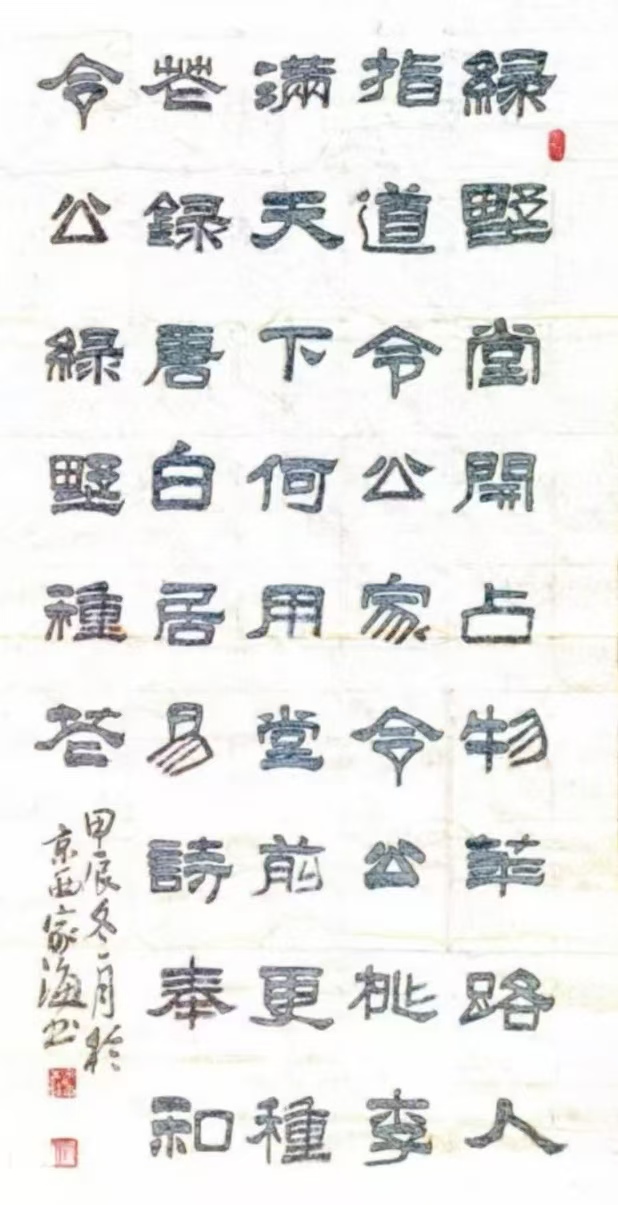 緑墅堂開占物華路人
指道令公家令公桃李
滿天下何用堂前更種
花録唐白居易詩奉和
令公緑墅種花
甲辰冬月於
京西家海书